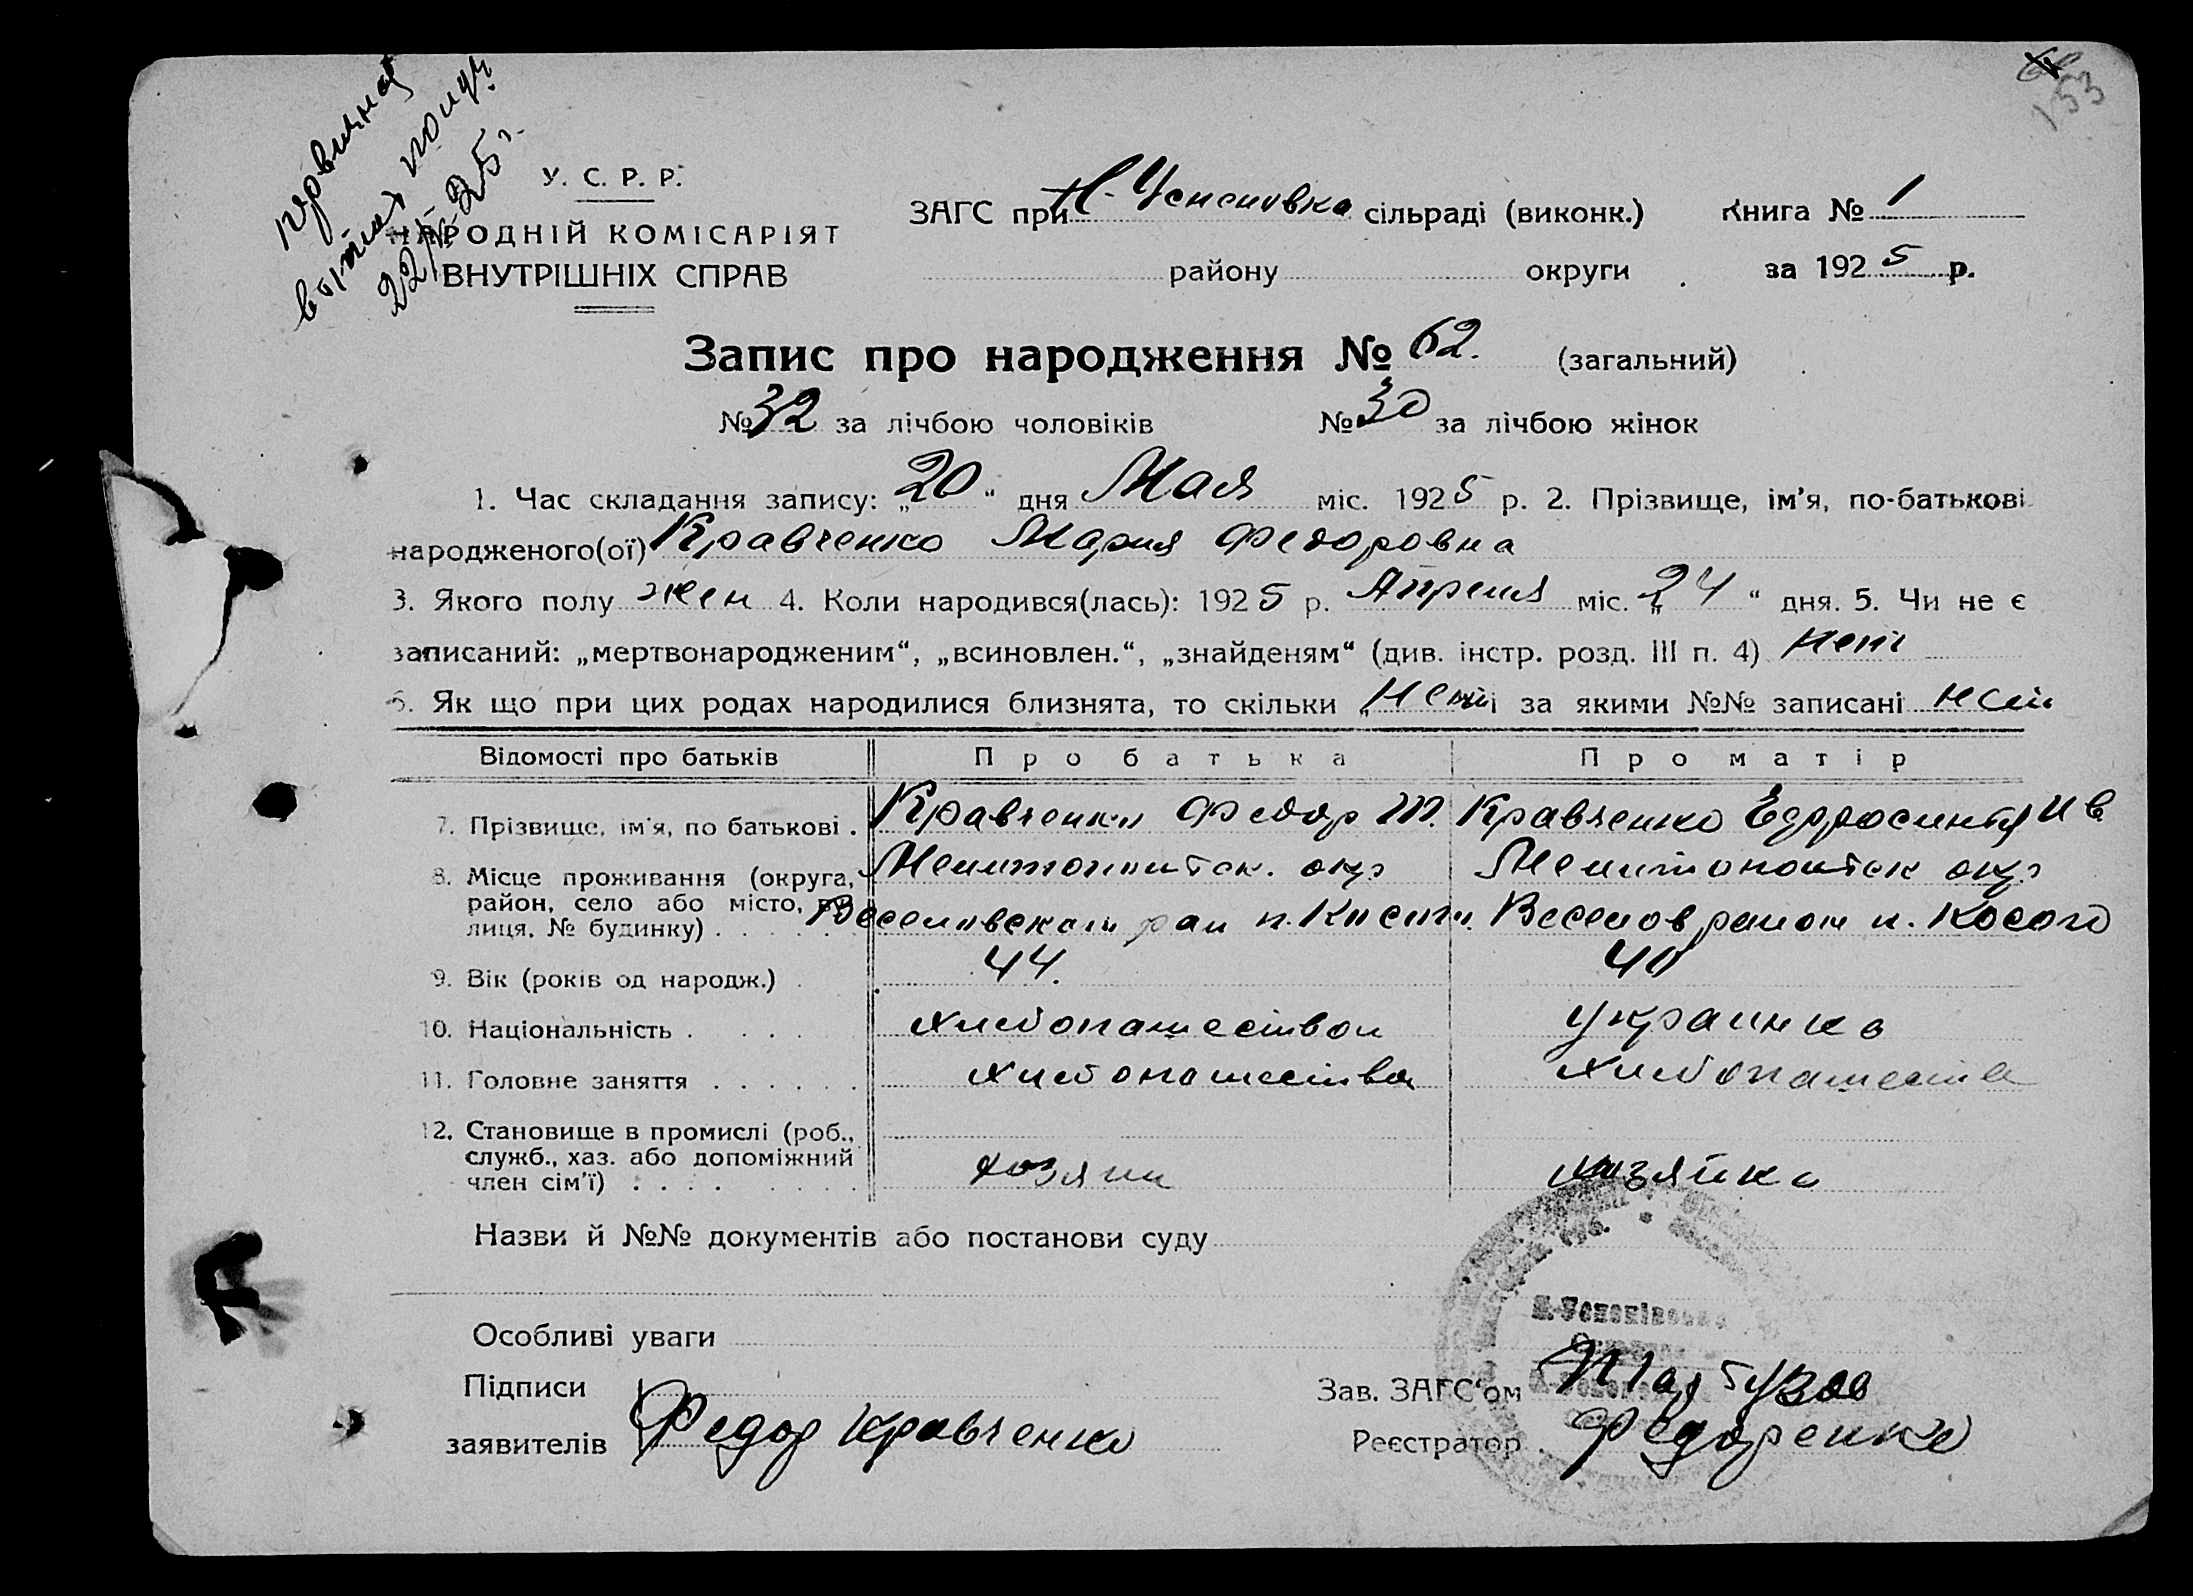 153
первичная
выпись
22/V-25 г.
У. С. Р. Р.
НАРОДНІЙ КОМІСАРІЯТ
ВНУТРІШНІХ СПРАВ
ЗАГС при Н-Успеновка сільраді (виконк.) Книга № 1
району округи за 1925 р.
Запис про народження № 62. (загальний)
№ 32 за лічбою чоловіків № 30 за лічбою жінок
1. Час складання запису: „20“ дня Мая міс. 1925 р. 2. Прізвище, ім'я, по-батькові
народженого(ої) Кравченко Мария Федоровна
3. Якого полу жен 4. Коли народився(лась): 1925 р. Апреля міс. „24“ дня. 5. Чи не є
записаний: „мертвонародженим“, „всиновлен.“, „знайденям“ (див. інстр. розд. III п. 4) нет
6. Як що при цих родах народилися близнята, то скільки „нет і за якими №№ записані нет
Відомості про батьків Про батька Про матір
7. Прізвище, ім'я, по батькові . Кравченко Федор Т. Кравченко Ефросиния Ив
8. Місце проживання (округа, район, село або місто, вулиця, № будинку) . . . . .
Мелитопольск. окр Мелитопольск окр
Веселовской рай Веселов район
9. Вік (років од народж.) . 44. 40
10. Національність . . . . хлебопашеством украинка
11. Головне заняття . . . . . . хлебопашество хлебопашество
12. Становище в промислі (роб., служб., хаз. або допоміжний член сім'ї) . . . .
хозяин хозяйка
Назви й №№ документів або постанови суду
Особливі уваги
Підписи
заявителів Федор Кравченко
Зав. ЗАГС'ом
Реєстратор . Федоренко